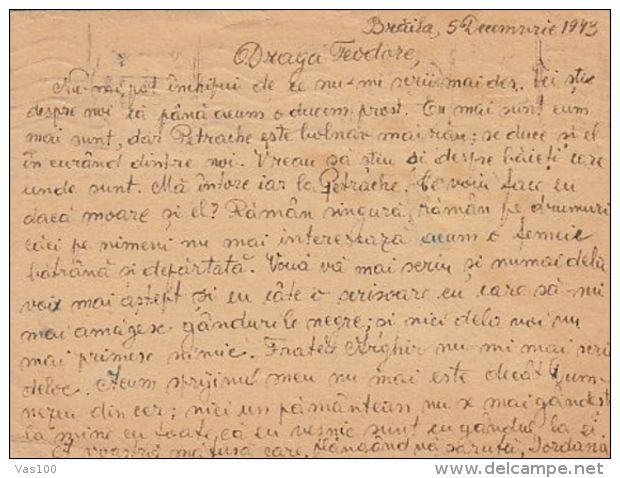 Brăila, 5 Decemvrie 1943
Dragă Teodore,
Nu-mi pot închipui de ce nu-mi scrii mai des. Vei ști
despre noi că până acum o ducem prost. Eu mai sunt cum
mai sunt, dar Petrache este bolnav mai rău; se duce și el
în curând dintre noi. Vreau să știu și despre băieți care
unde sunt. Mă întorc iar la Petrache. Ce voiu face eu
dacă moare și el? Rămân singură, rămân pe drumuri
căci pe nimeni nu mai interesează acum o femeie
bătrână și depărtată. Vouă vă mai scriu și numai dela
voi mai aștept și eu câte o scrisoare cu care să-mi
mai amăgesc gândurile negre; și nici dela voi nu
mai primesc nimic. Fratele Arghir nu mi mai scrie
deloc. Acum sprijinul meu nu mai este decât Dum-
nezeu din cer; nici un pământean nu se mai gândește
la mine cu toate că eu veșnic sunt cu gândul la ei.
A voastră mătușă care, plângând vă sărută, Iordana
Vas100
delcampe.net